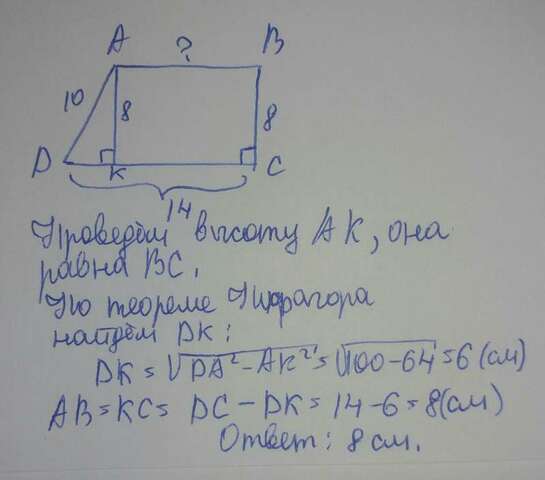 A ? B
10 8 8
D K C
14
Проведём высоту AK, она
равна BC.
По теореме Пифагора
найдём DK:
DK = √DA² - AK² = √100-64 = 6 (см)
AB = KC = DC - DK = 14 - 6 = 8(см)
Ответ: 8 см.